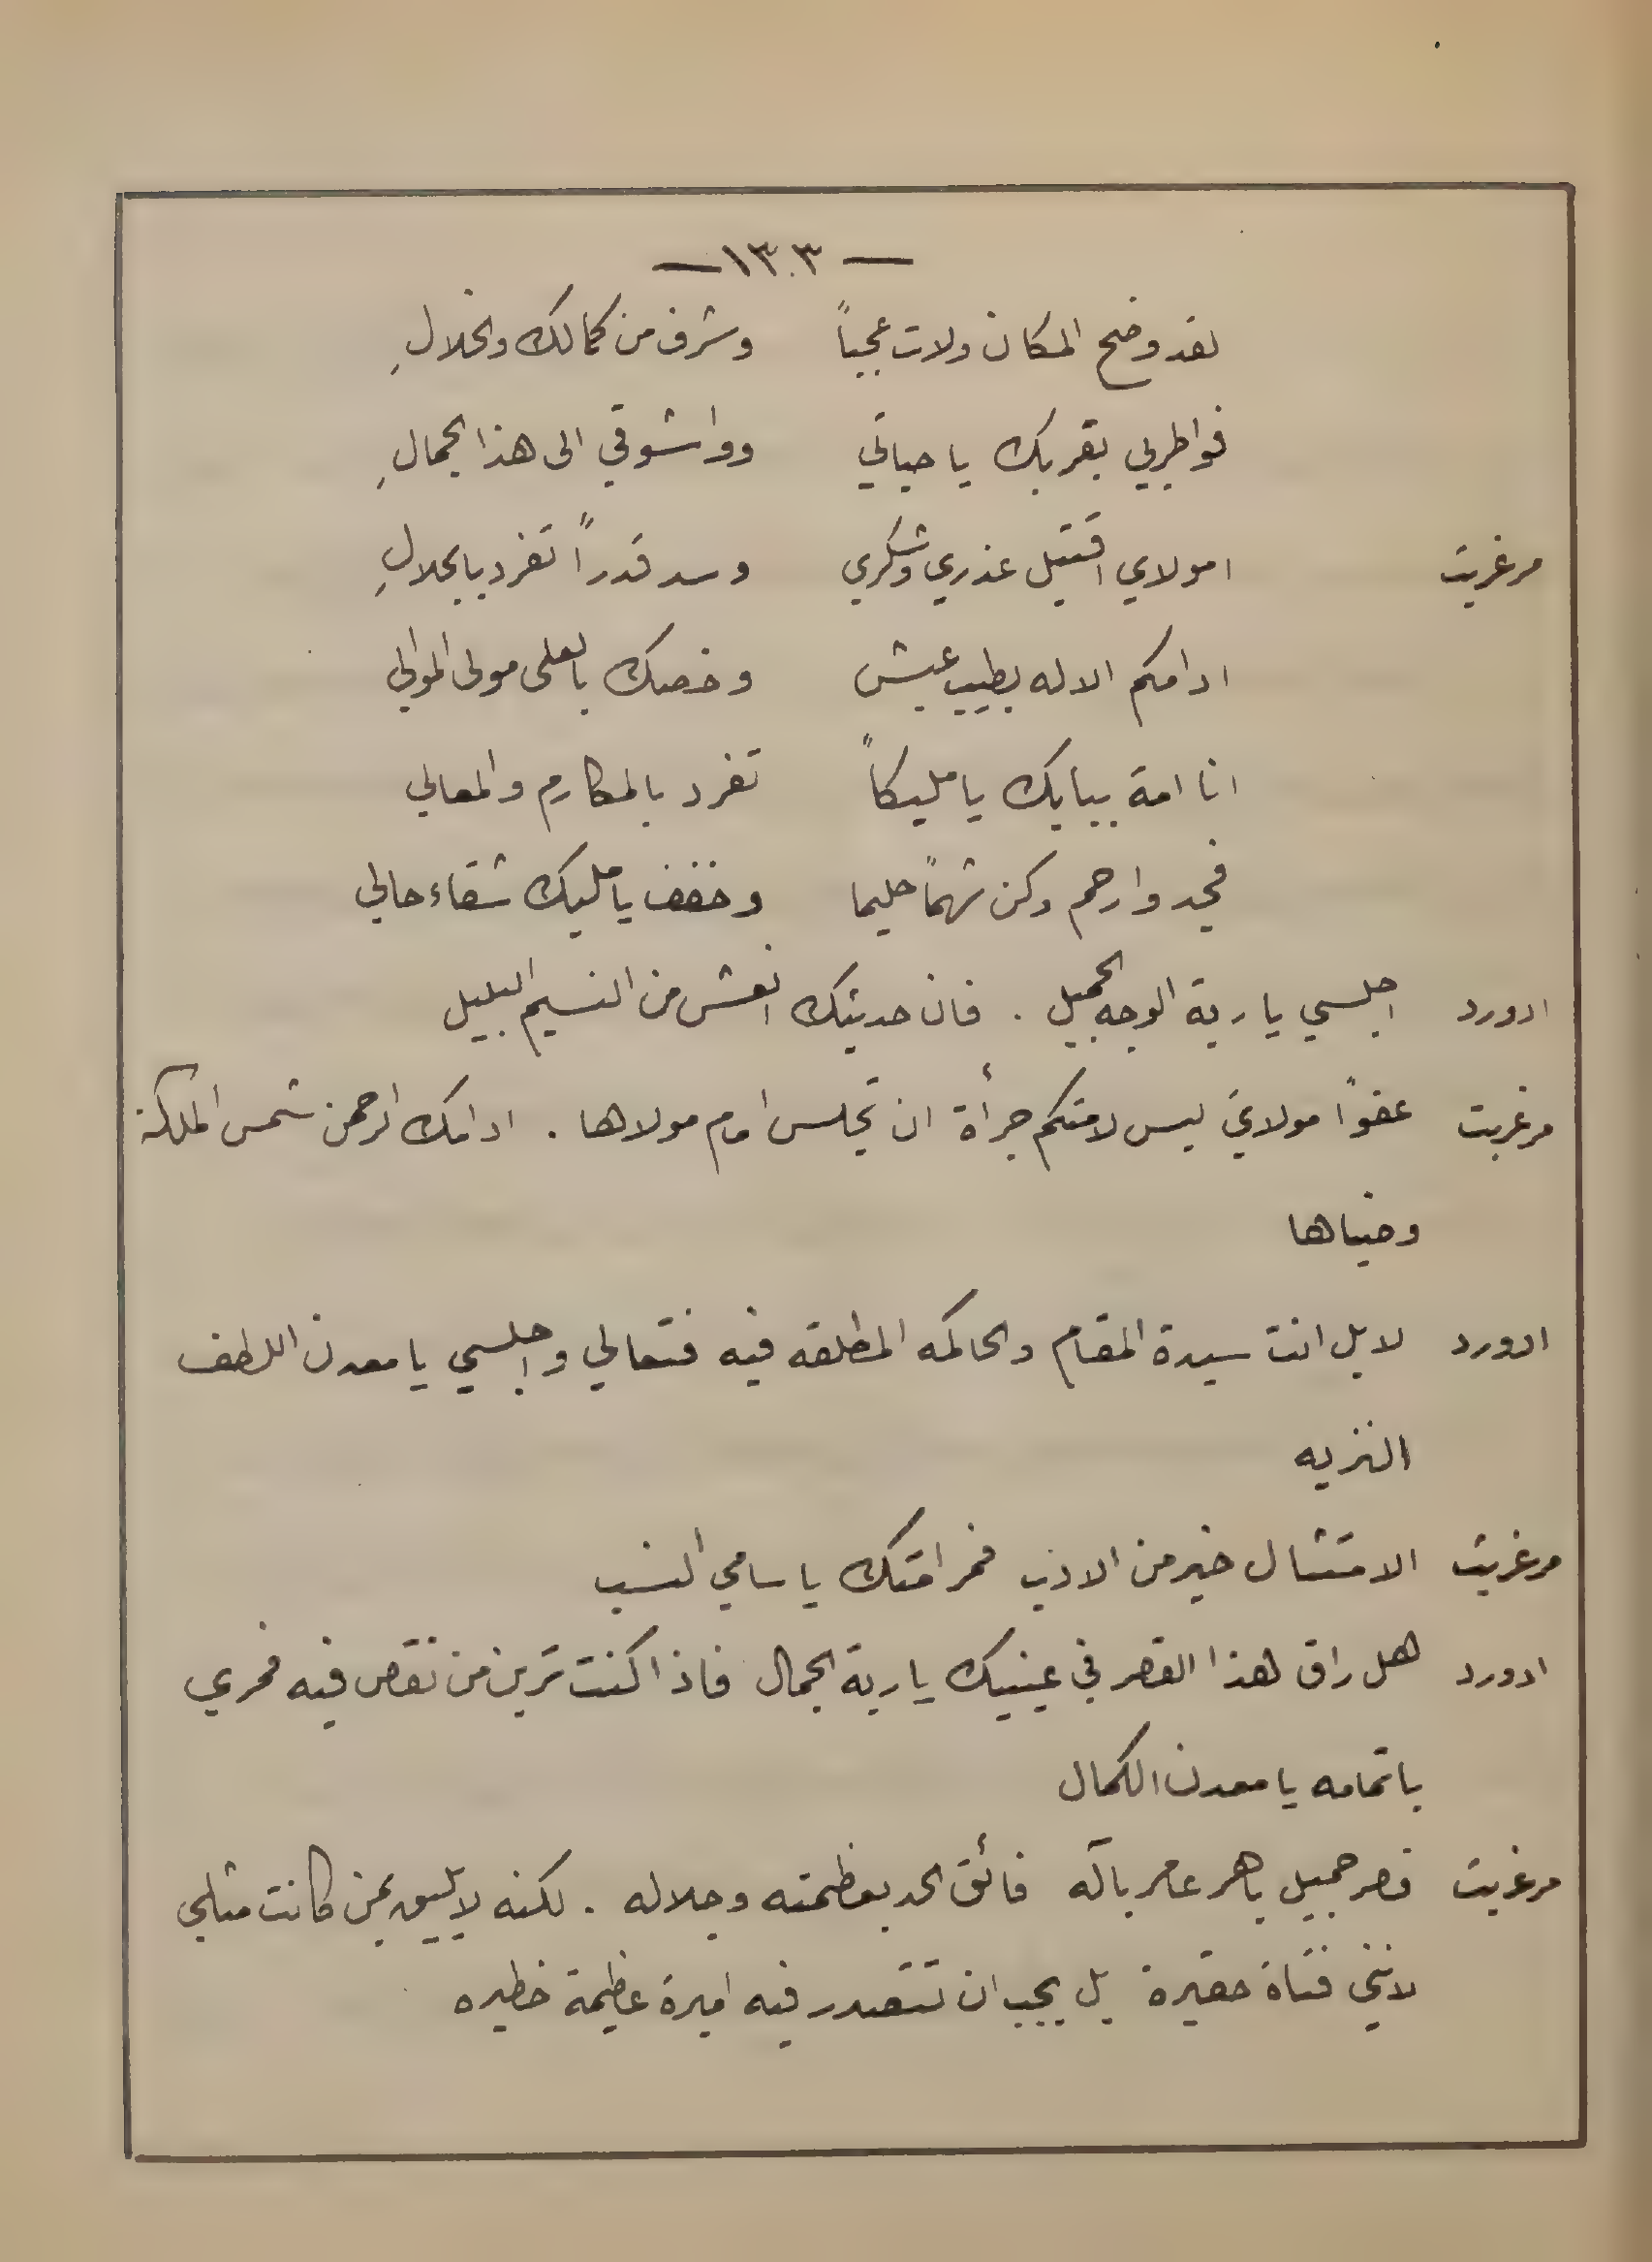 — ١٣٠٣ —
لقد وضح المكان ولات عجباً وشرف من كمالك والخلالِ
فواطربي بقربك يا حياتي وواشوقي الى هذا الجمالِ
مرغريت امولاي اقتبل عذري وشكري وسد قدراً تفرد بالجلالِ
ادامكم الاله بطيب عيش وخصك بالعلى مولى الموالي
انا امة ببابك يا مليكاً تفرد بالمكارم والمعالي
فجد وارحم وكن شهماً حليما وخفف يا مليك شقاء حالي
ادورد اجلسي يا ربة الوجه الجميل . فان حديثك انعش من النسيم البليل
مرغريت عفواً مولايَ ليس لامتكم جرأة ان تجلس امام مولاها . ادامك الرحمن شمس المملكة
وضياها
ادورد لا بل انت سيدة المقام والحاكمه المطلقه فيه فتعالي واجلسي يا معدن اللطف
النزيه
مرغريت الامتثال خير من الادب فمر امتك يا سامي النسب
ادورد هل راق هذا القصر في عينيك يا ربة الجمال فاذا كنت ترين من نقص فيه فمري
باتمامه يا معدن الكمال
مرغريت قصر جميل باهر عامر بآله فائق الحد بعظمته وجلاله . لكنه لا يليق بمن كانت مثلي
لانني فتاة حقيرة بل يجب ان تتصدر فيه اميرة عظيمة خطيره